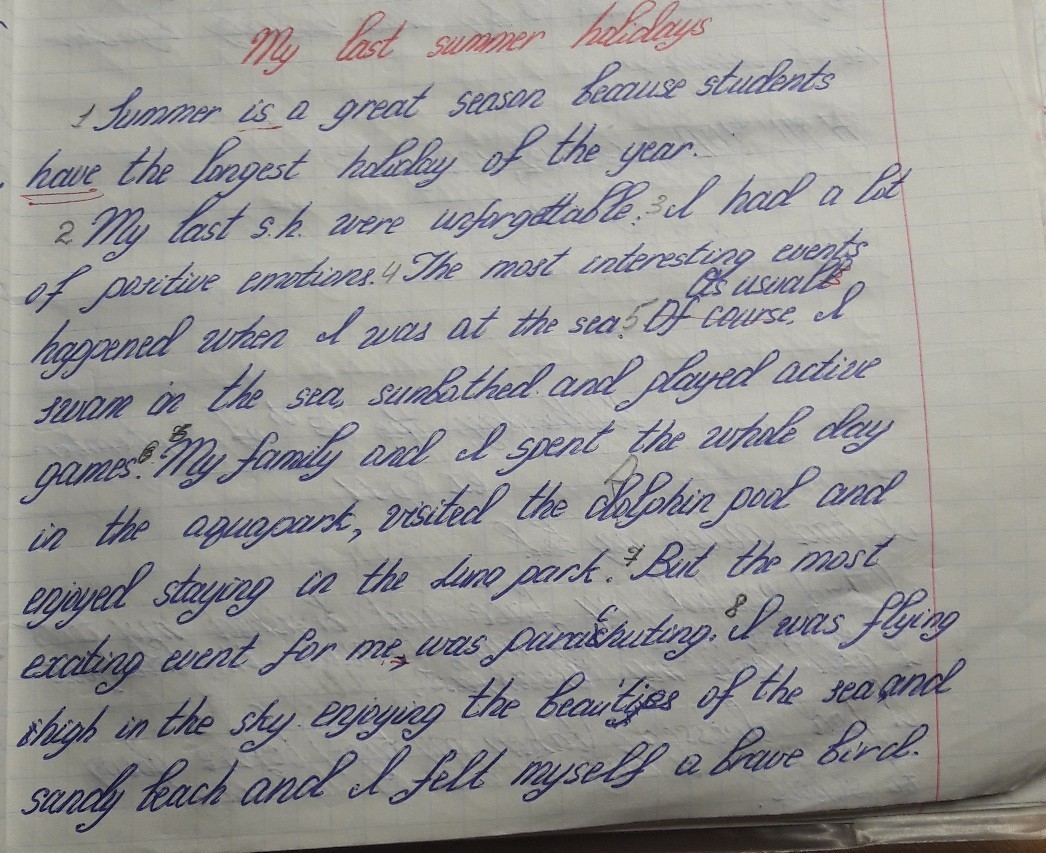 My last summer holidays
1 Summer is a great season because students
have the longest holiday of the year.
2 My last s.h. were unforgettable. 3 I had a lot
of positive emotions. 4 The most interesting events
As usual
happened when I was at the sea. 5 Of course, I
swam in the sea, sunbathed and played active
games. 6 My family and I spent the whole day
in the aquapark, visited the dolphin pool and
enjoyed staying in the Luna park. 7 But the most
exciting event for me, was parachuting. 8 I was flying
high in the sky enjoying the beauties of the sea and
sandy beach and I felt myself a brave bird.